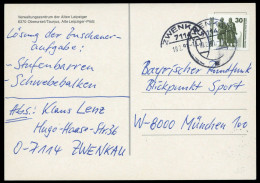 Verwaltungszentrum der Alten Leipziger
6370 Oberursel/Taunus, Alte Leipziger-Platz
Lösung der Zuschauer-
aufgabe:
- Stufenbarren
- Schwebebalken
Abs.: Klaus Lenz
Hugo-Haase-Str 36
O-7114 ZWENKAU
ZWENKAU
7114
30
Bayrischer Rundfunk
Blickpunkt Sport
W-8000 München